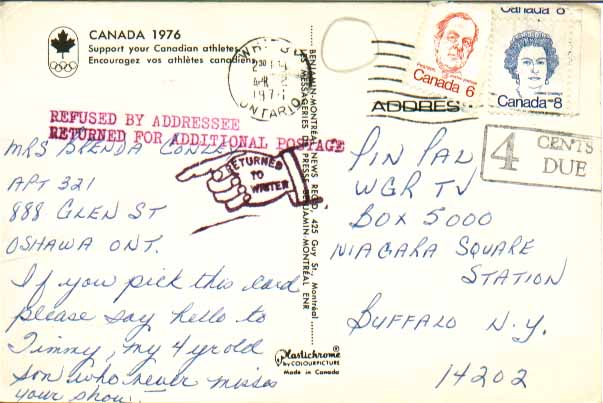 CANADA 1976
Support your Canadian athletes
Encouragez vos athlètes canadiens
ONTARIO
Canada 6
Canada 8
Canada 8
ADDRES
4 CENTS
DUE
REFUSED BY ADDRESSEE
RETURNED FOR ADDITIONAL POSTAGE
RETURNED
TO
WRITER
MRS BRENDA
APT 321
888 GLEN ST
OSHAWA ONT.
If you pick this card
please say hello to
Timmy, my 4 yr old
son who never misses
your show.
BENJAMIN-MONTREAL NEWS REG'D, 425 Guy St., Montréal
LES MESSAGERIES DE PRESSE BENJAMIN-MONTRÉAL ENR
Plastichrome®
by COLOURPICTURE
Made in Canada
PIN PAL
WGR TV
BOX 5000
NIAGARA SQUARE
STATION
BUFFALO N.Y.
14202